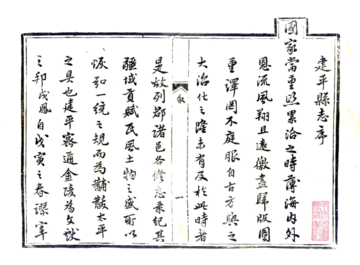 建平縣志序
國家當重熙累洽之時薄海內外
恩流風翔且遠徼盡歸版圖
重譯罔不庭服自古方輿之
大治化之隆未有及於此時者
叙
一
是故列郡諸邑各脩志乘紀其
疆域貢賦民風土物之盛所以
恢弘一統之規而為黼黻太平
之具也建平密邇金陵為文獻
之邦鳳自戊寅之春謬宰